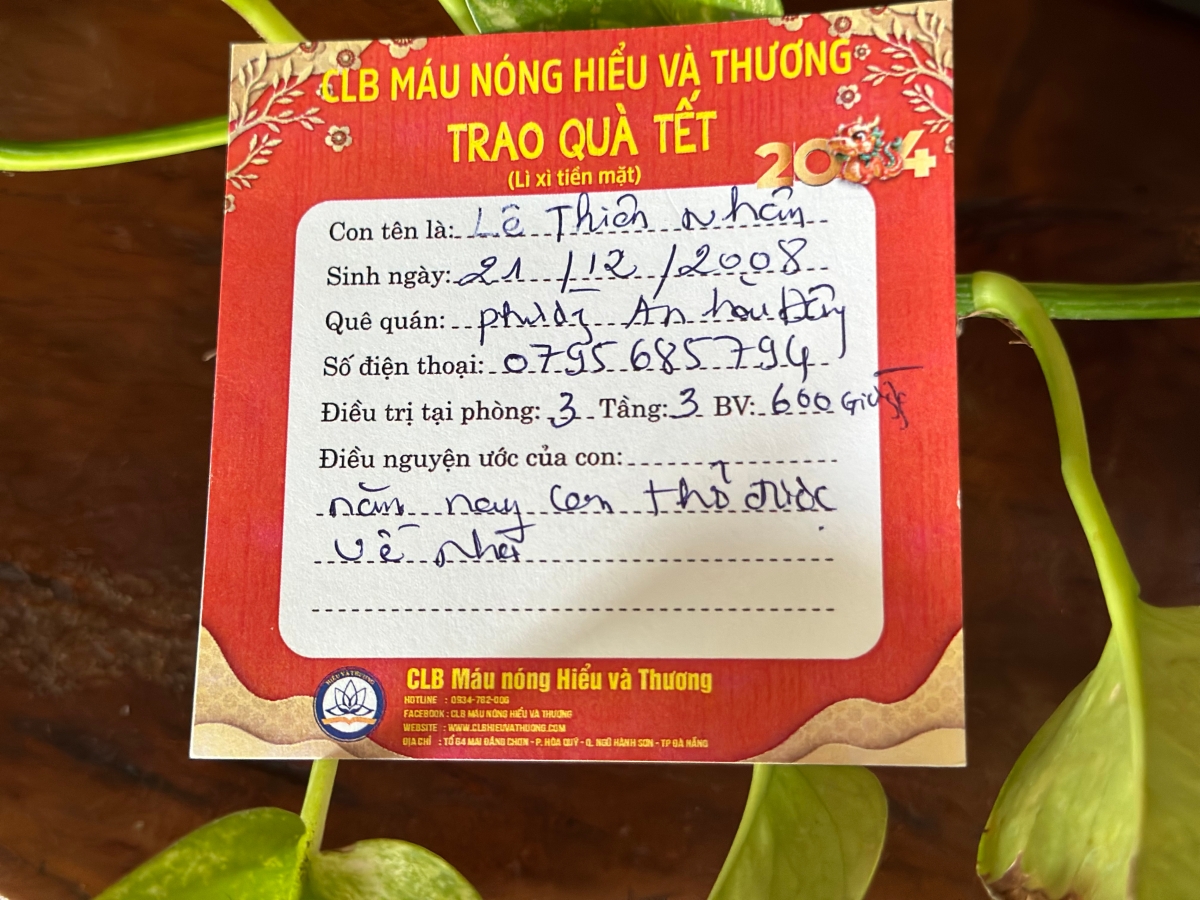 CLB MÁU NÓNG HIỂU VÀ THƯƠNG
TRAO QUÀ TẾT
(Lì xì tiền mặt)
2024
Con tên là: Lê Thiện Nhân
Sinh ngày: 21/12/2008
Quê quán: phường An hải Đông
Số điện thoại: 0795685794
Điều trị tại phòng: 3 Tầng: 3 BV: 600 Giường
Điều nguyện ước của con:
năm nay con thở được
về nhà
HIỂU VÀ THƯƠNG
CLB Máu nóng Hiểu và Thương
HOTLINE : 0934-762-006
FACEBOOK : CLB MÁU NÓNG HIỂU VÀ THƯƠNG
WEBSITE : WWW.CLBHIEUVATHUONG.COM
ĐỊA CHỈ : TỔ 64 MAI ĐĂNG CHƠN - P. HÒA QUÝ - Q. NGŨ HÀNH SƠN - TP ĐÀ NẴNG